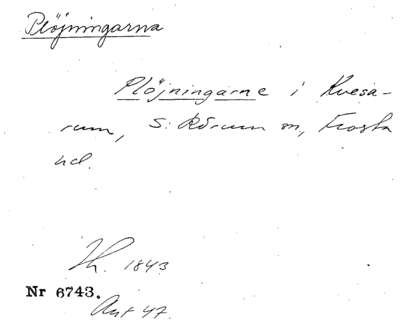 Plöjningarna
Plöjningarne i Kvesa-
rum, S: Rörum sn, Frosta
hd.
Lh. 1843
Nr 6743.
Ant 47.